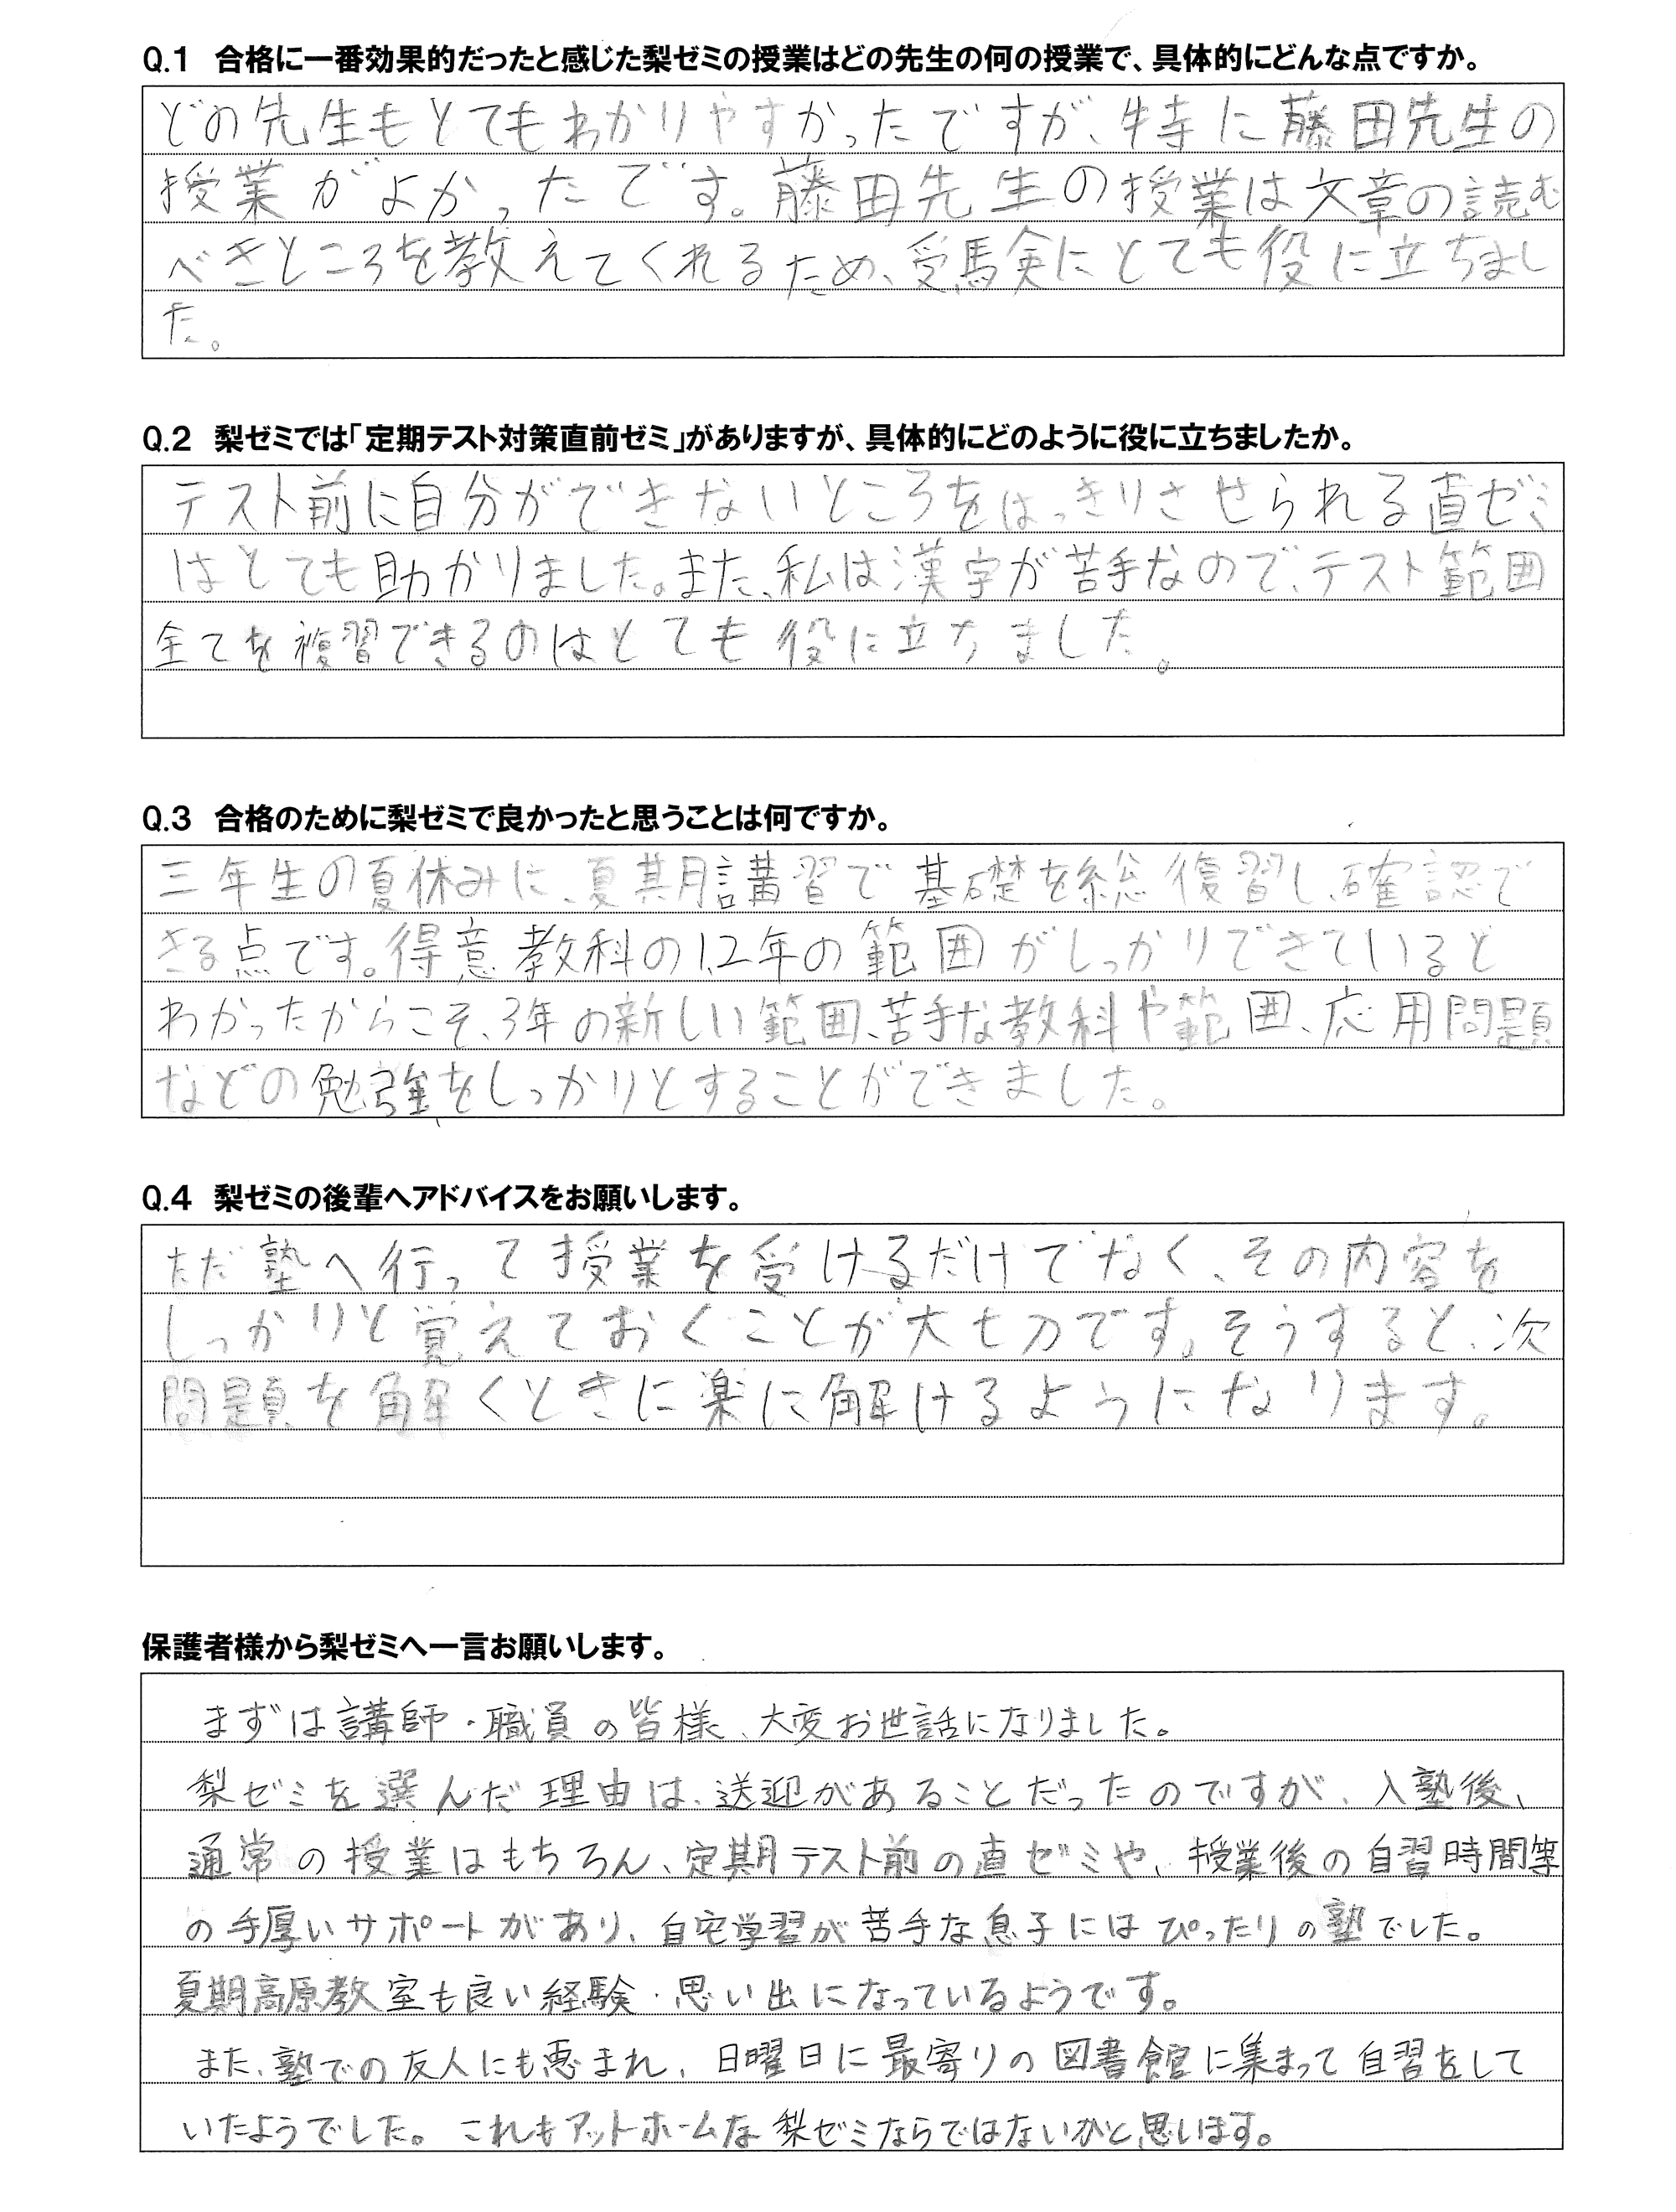 Q.1 合格に一番効果的だったと感じた梨ゼミの授業はどの先生の何の授業で、具体的にどんな点ですか。
どの先生もとてもわかりやすかったですが、特に藤田先生の
授業がよかったです。藤田先生の授業は文章の読む
べきところを教えてくれるため、受験にとても役に立ちまし
た。
Q.2 梨ゼミでは「定期テスト対策直前ゼミ」がありますが、具体的にどのように役に立ちましたか。
テスト前に自分ができないところをはっきりさせられる直ゼミ
はとても助かりました。また、私は漢字が苦手なので、テスト範囲
全てを複習できるのはとても役に立ちました。
Q.3 合格のために梨ゼミで良かったと思うことは何ですか。
三年生の夏休みに、夏期講習で基礎を総復習し、確認で
きる点です。得意教科の1,2年の範囲がしっかりできていると
わかったからこそ、3年の新しい範囲、苦手な教科や範囲、応用問題
などの勉強をしっかりとすることができました。
Q.4 梨ゼミの後輩へアドバイスをお願いします。
ただ塾へ行って授業を受けるだけでなく、その内容を
しっかりと覚えておくことが大切です。そうすると、次
問題を解くときに楽に解けるようになります。
保護者様から梨ゼミへ一言お願いします。
まずは講師・職員の皆様、大変お世話になりました。
梨ゼミを選んだ理由は、送迎があることだったのですが、入塾後、
通常の授業はもちろん、定期テスト前の直ゼミや、授業後の自習時間等
の手厚いサポートがあり、自宅学習が苦手な息子にはぴったりの塾でした。
夏期高原教室も良い経験・思い出になっているようです。
また、塾での友人にも恵まれ、日曜日に最寄りの図書館に集まって自習をして
いたようでした。これもアットホームな梨ゼミならではないかと思います。